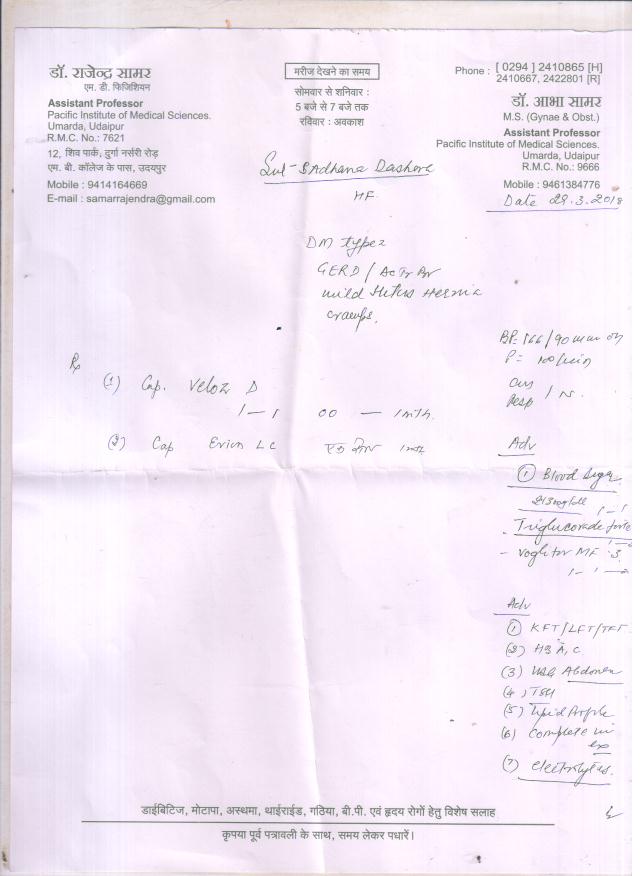 डॉ. राजेन्द्र सामर
एम. डी. फिजिशियन
Assistant Professor
Pacific Institute of Medical Sciences.
Umarda, Udaipur
R.M.C. No.: 7621
12, शिव पार्क, दुर्गा नर्सरी रोड़
एम. बी. कॉलेज के पास, उदयपुर
Mobile : 9414164669
E-mail : samarrajendra@gmail.com
मरीज देखने का समय
सोमवार से शनिवार :
5 बजे से 7 बजे तक
रविवार : अवकाश
Phone : [ 0294 ] 2410865 [H]
2410667, 2422801 [R]
डॉ. आभा सामर
M.S. (Gynae & Obst.)
Assistant Professor
Pacific Institute of Medical Sciences.
Umarda, Udaipur
R.M.C. No.: 9666
Mobile : 9461384776
Date 29.3.2018
Sadhana Dashora
DM type2
GERD /
mild Hernia
BP= 166/90 mm
P= 100/min
Resp / N.
Rx
(1) Cap. Veloz D
1—1 00 — 1mth.
(2) Cap Evion LC 1mth
Adv
(1) Blood Sugar
Triglucorade forte
- MF .3
Adv
(1) KFT/LFT/TFT
(2) HBA1C
(3) USG Abdomen
(4) TSH
(5) Lipid Profile
(6) Complete
(7) Electrolytes.
डाईबिटिज, मोटापा, अस्थमा, थाईराईड, गठिया, बी.पी. एवं हृदय रोगों हेतु विशेष सलाह
कृपया पूर्व पत्रावली के साथ, समय लेकर पधारें।